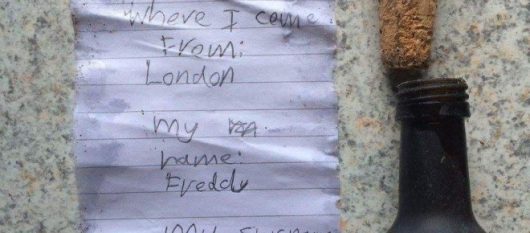 Where I come
From:
London
My
name:
Freddy